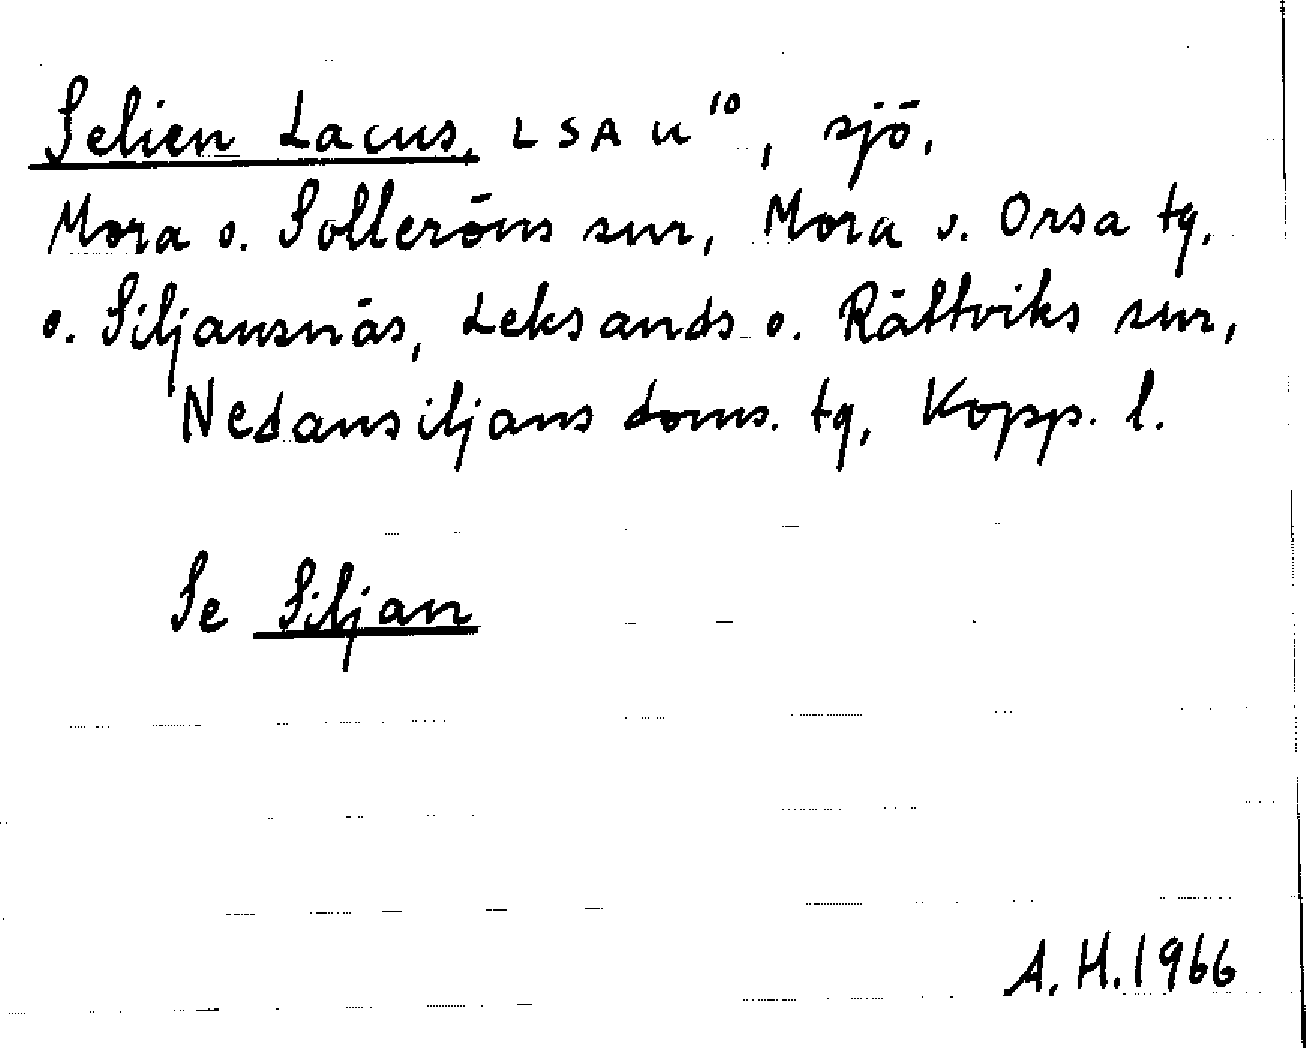 Selien Lacus, LSA U 10, sjö,
Mora o. Solleröns snr, Mora o. Orsa tg,
o. Siljansnäs, Leksands o. Rättviks snr,
Nedansiljans doms. tg, Kopp. l.
Se Siljan
A. H. 1966